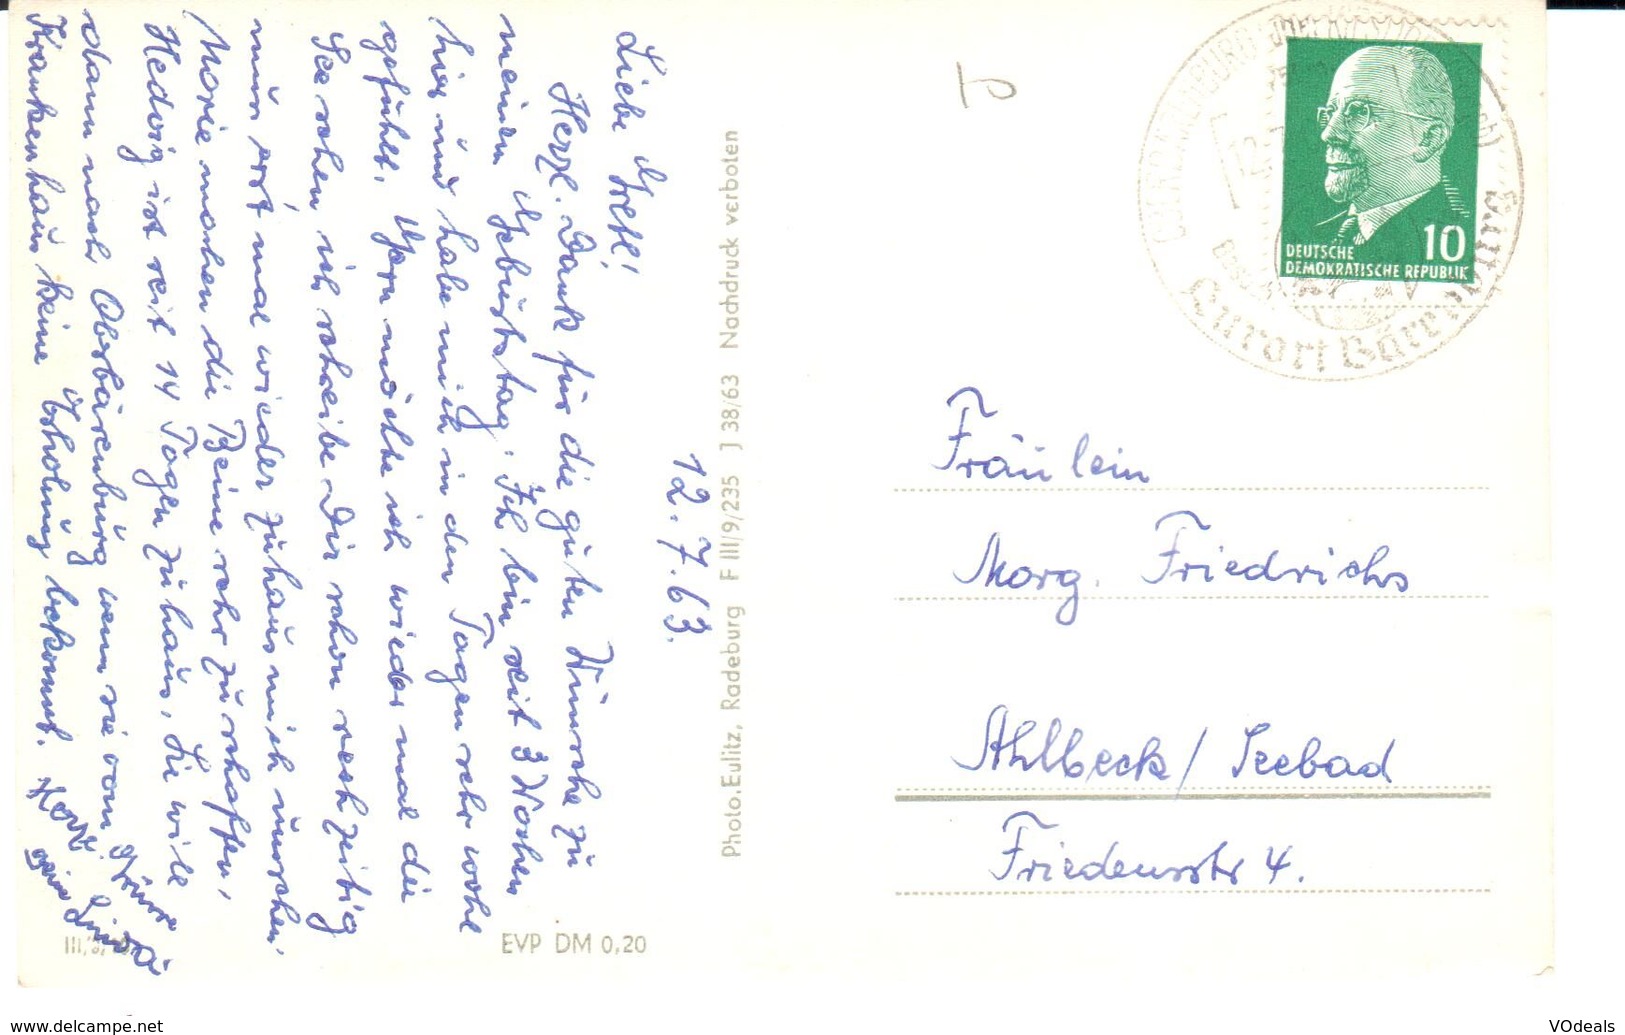 12.7.63.
Liebe Gretl!
Herzl. Dank für die guten Wünsche zu
meinem Geburtstag. Ich bin seit 3 Wochen
hier und habe mich in den Tagen sehr wohl
gefühlt. Gern möchte ich wieder mal die
See sehen, ich schreibe Dir schon rechtzeitig
muss erst mal wieder zuhaus mich
Marie machen die Beine sehr zu schaffen,
Hedwig ist seit 14 Tagen zuhaus, Sie will
dann nach Oberbärenburg wenn sie vom
Krankenhaus keine Erholung bekommt. Herzl. Grüsse
Deine
Photo.Eulitz, Radeburg F III/9/235 J 38/63 Nachdruck verboten
EVP DM 0,20
DEUTSCHE
DEMOKRATISCHE REPUBLIK
10
Kurort
Fräulein
Marg. Friedrichs
Ahlbeck/Seebad
Friedensstr 4.
www.delcampe.net
VOdeals